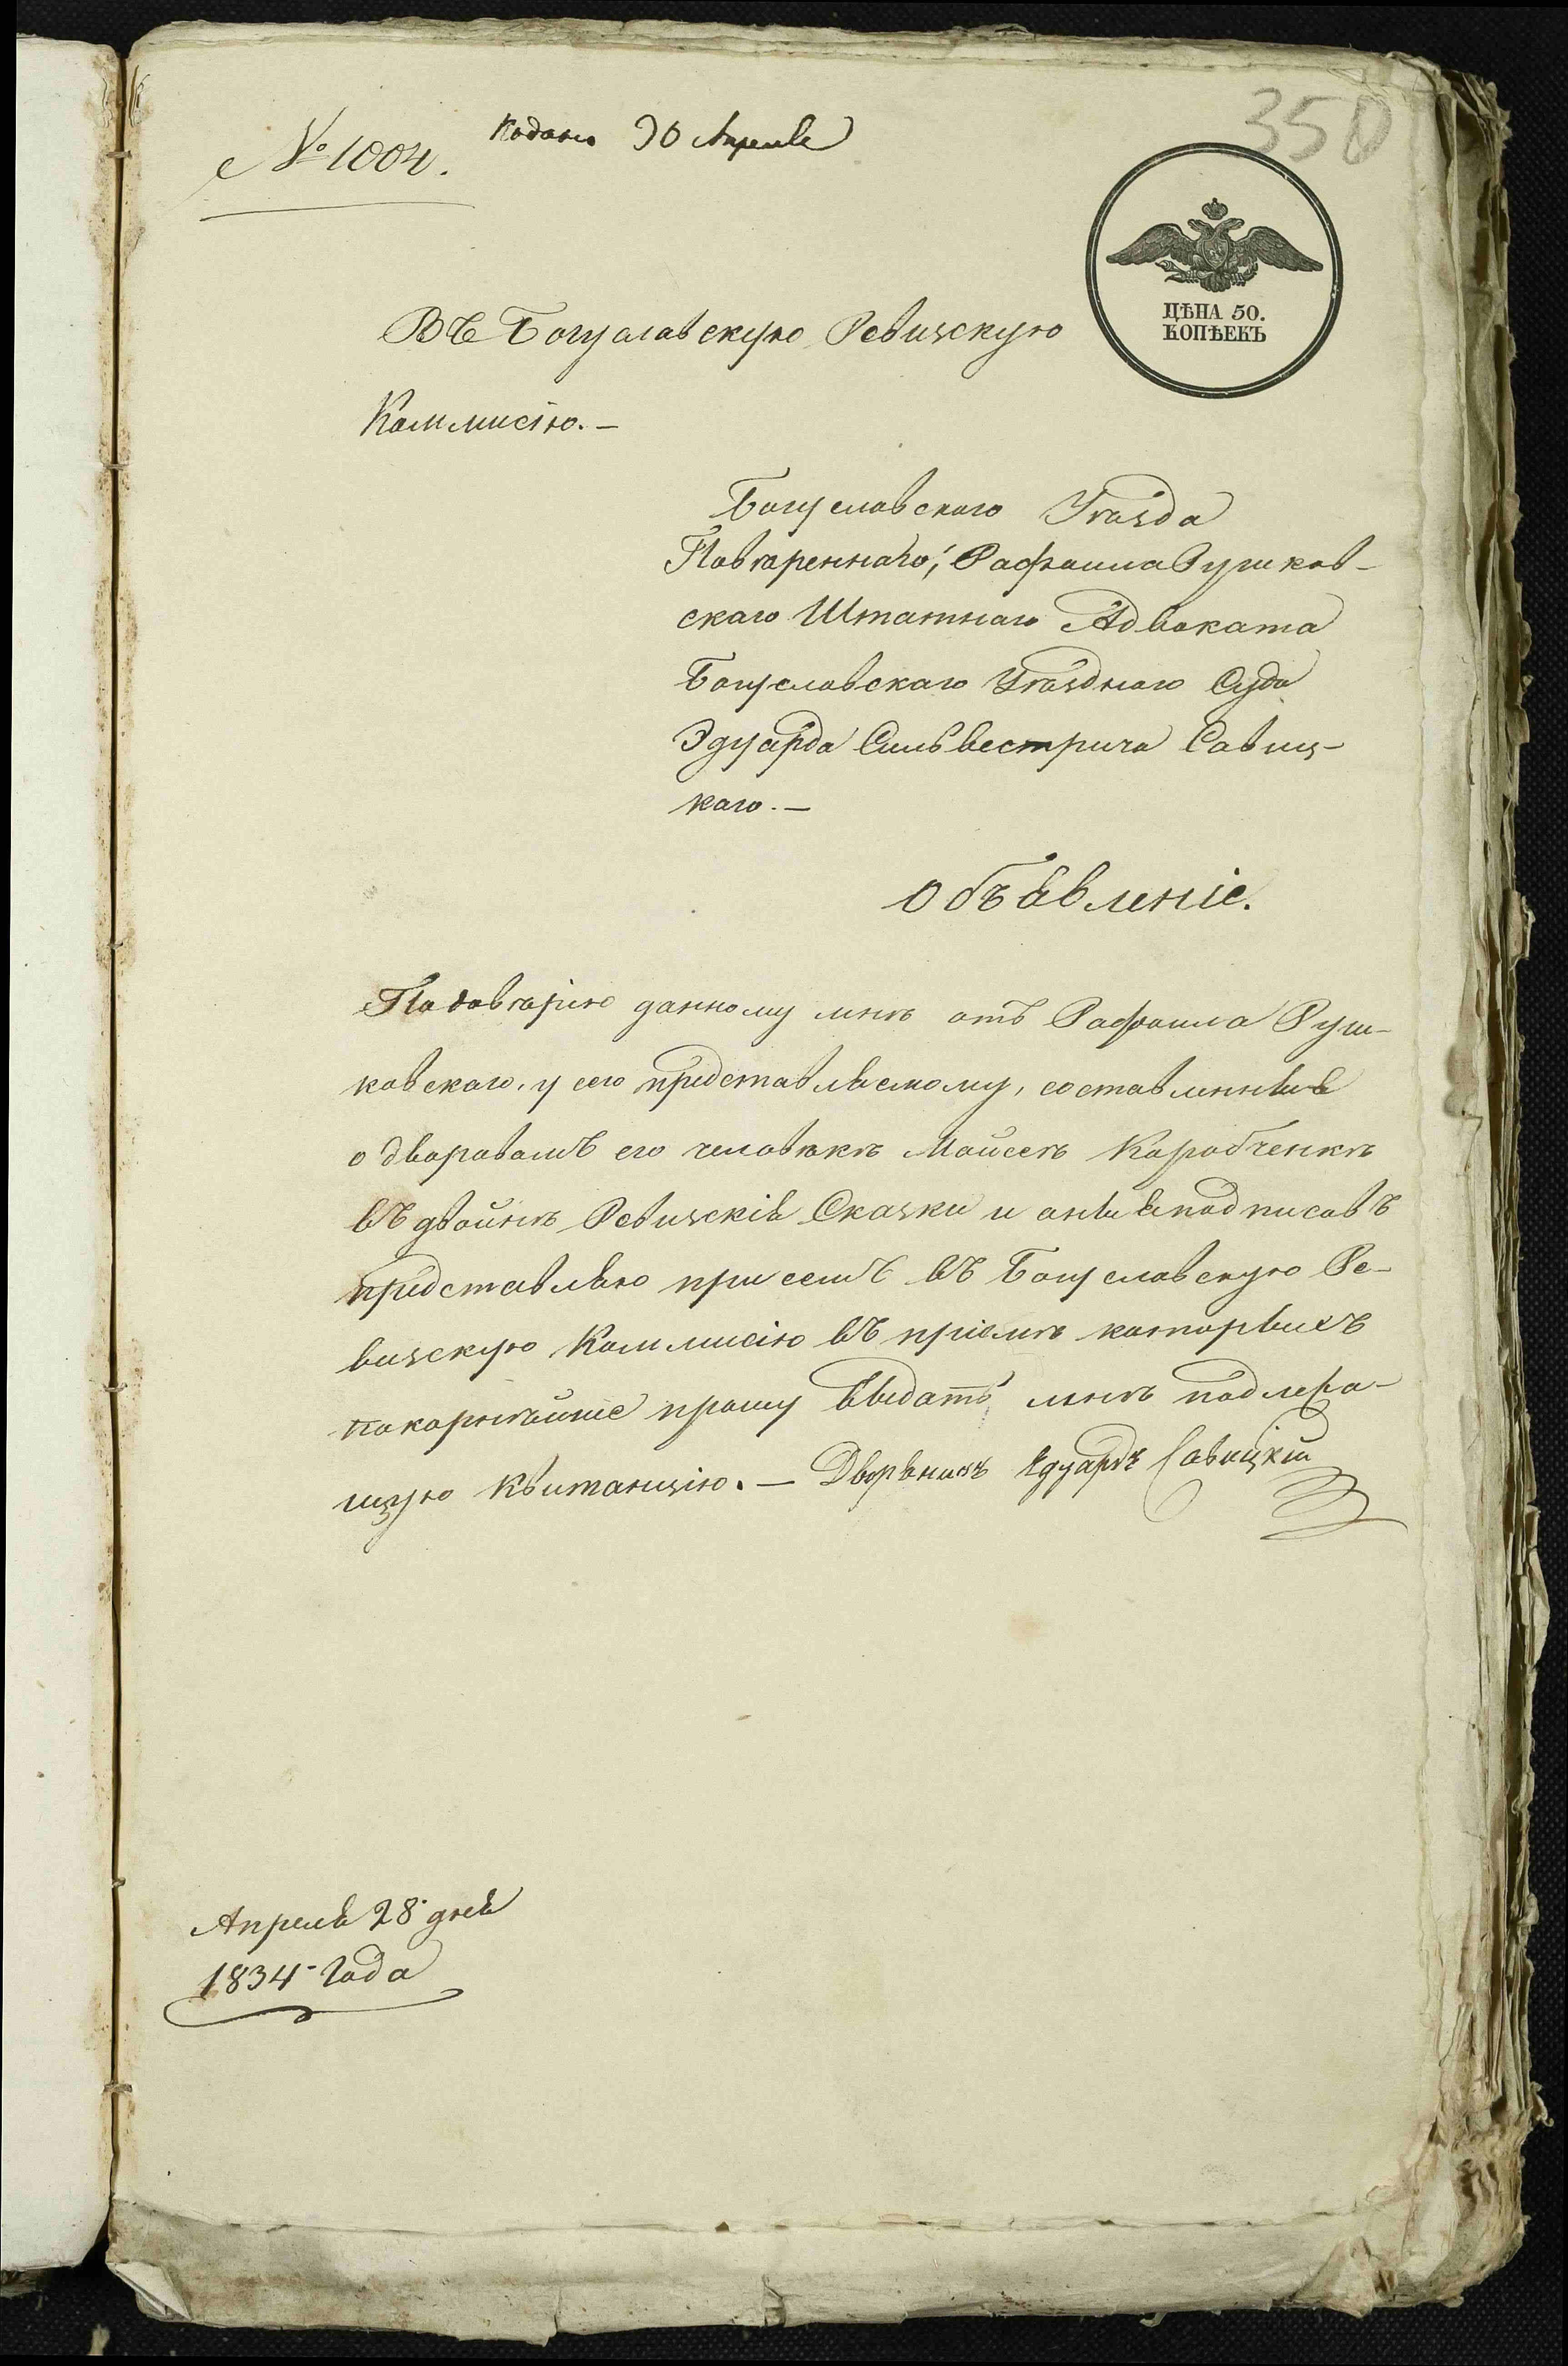 350
№ 1004. Подано 30 Апреля
ЦѢНА 50.
КОПѢЕКЪ
Въ Богуславскую Ревизскую
Коммисію.—
Богуславскаго Уѣзда
Повѣреннаго, Рафаила Рушков-
скаго Штатнаго Адвоката
Богуславскаго Уѣзднаго Суда
Эдуарда Сильвестрича Савиц-
каго.—
Объявленіе.
По довѣрію данному мнѣ отъ Рафаила Руш-
ковскаго, у сего представляемому, составленныя
о дворовомъ его человѣкѣ Мойсеѣ Коробченкѣ
въ двойнѣ Ревизскія Сказки и оныя подписавъ
представляю при семъ въ Богуславскую Ре-
визскую Коммисію въ пріемѣ которыхъ
покорнѣйше прошу выдать мнѣ подлежа-
щую Квитанцію.— Дворянинъ Едуардъ Савицкій
Апреля 28 дня
1834 Года